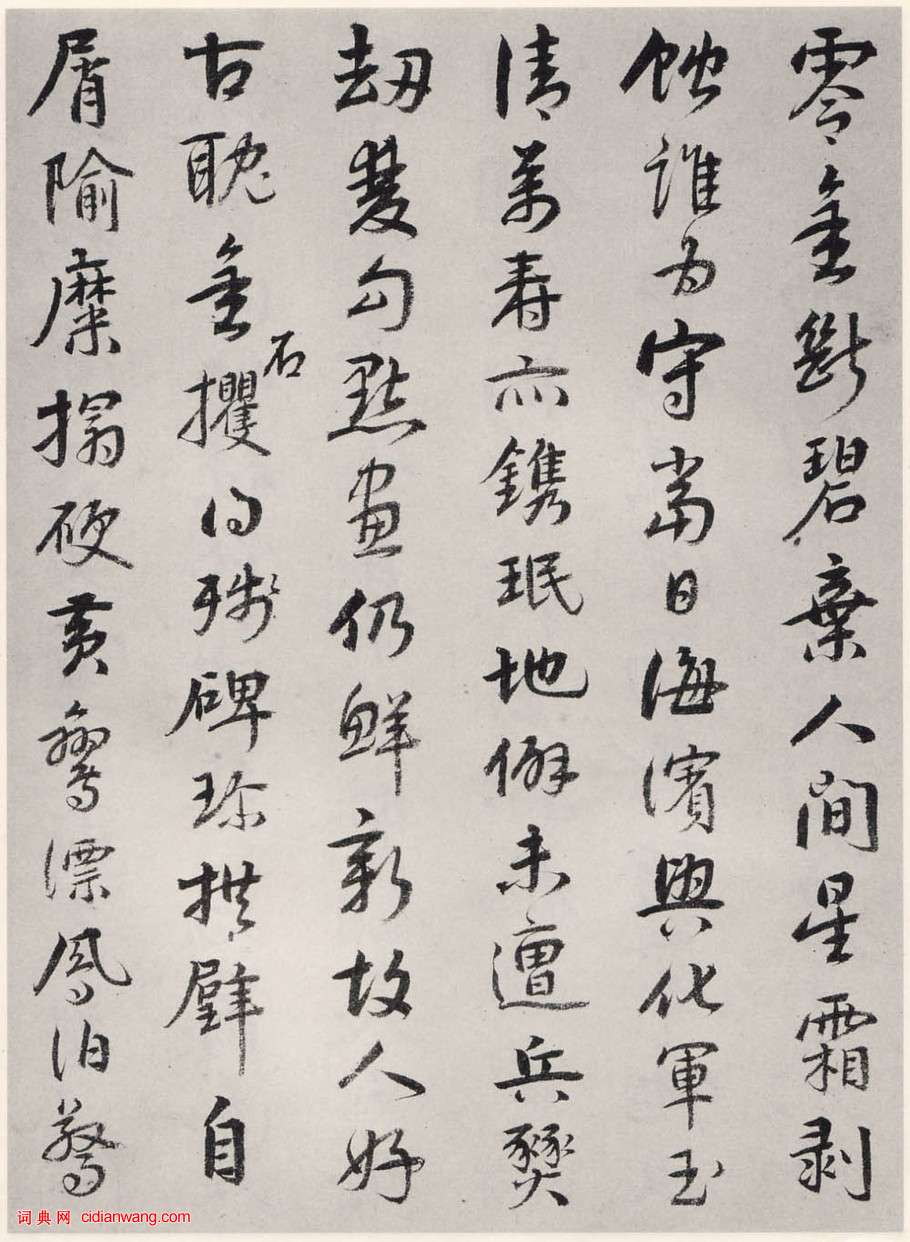 零金斷碧棄人間星霜剥
蝕誰為守當日海濱興化軍玉
清萬寿亦鐫珉地僻未遭兵燹
劫雙勾點畫仍鮮新故人好
古耽金石攫得殘碑珍拱璧自
屑隃麋搨硬黃鸞漂鳳泊驚
词典网 cidianwang.com